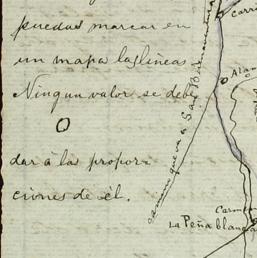 puedas marcar en
un mapa las lineas
Ningun valor se debe
dar á las propor-
ciones de él.
camino que va a San Bernardino
Carri
Alam
Carmen
La Peña blanca